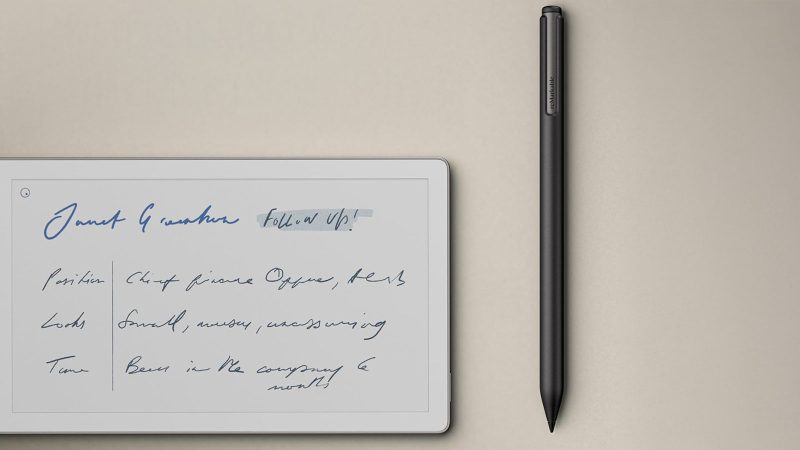 Janet
Follow up!
Position Chief finance Officer,
Looks Small, mousy, unassuming
Time Been in the company 6
months
reMarkable